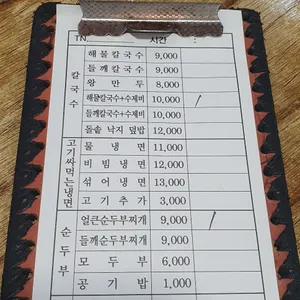 TN. 시간 :
칼국수
해물칼국수 9,000
들깨칼국수 9,000
왕만두 8,000
해물칼국수+수제비 10,000
들깨칼국수+수제비 10,000
돌솥 낙지 덮밥 12,000
고기싸먹는냉면
물냉면 11,000
비빔냉면 12,000
섞어냉면 13,000
고기추가 3,000
순두부
얼큰순두부찌개 9,000
들깨순두부찌개 9,000
모두부 6,000
공기밥 1,000